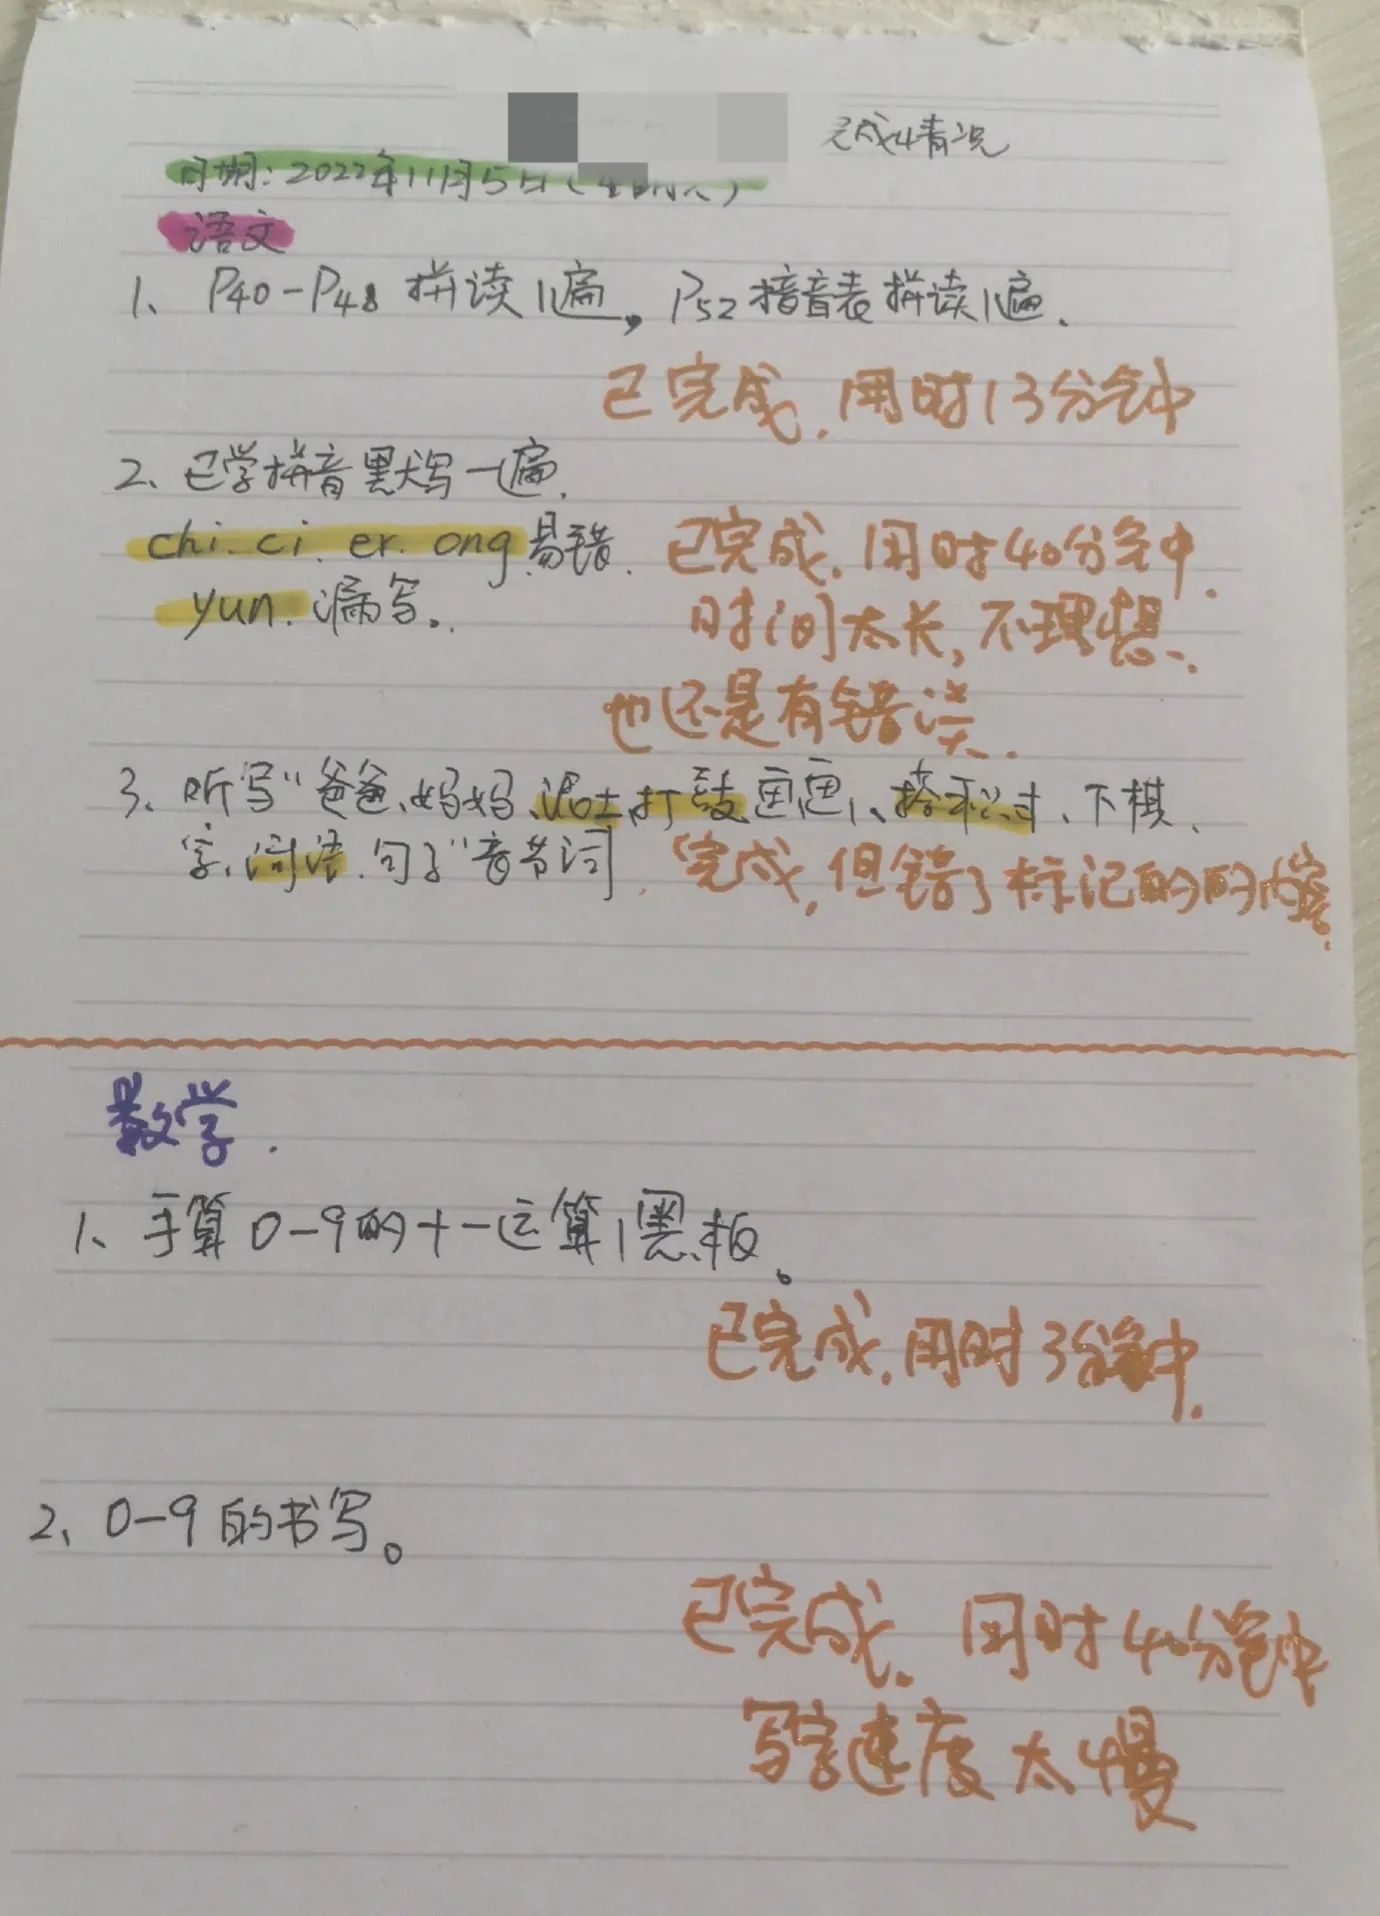 完成情况
日期：2022年11月5日（
语文
1、P40-P48 拼读1遍，P52 拼音表拼读1遍.
已完成，用时13分钟
2、已学拼音默写一遍.
chi. ci. er. ong 易错. 已完成. 用时40分钟.
yun. 漏写。 时间太长，不理想.
也还是有错误.
3、听写“爸爸、妈妈、泥土、打鼓、画画、搭积木、下棋、
字、词语.句子”音节词. 完成，但错了标记的的内容.
数学.
1、手算0-9的+-运算1黑板。
已完成.用时3分钟.
2、0-9的书写。
已完成. 用时40分钟
写字速度太慢